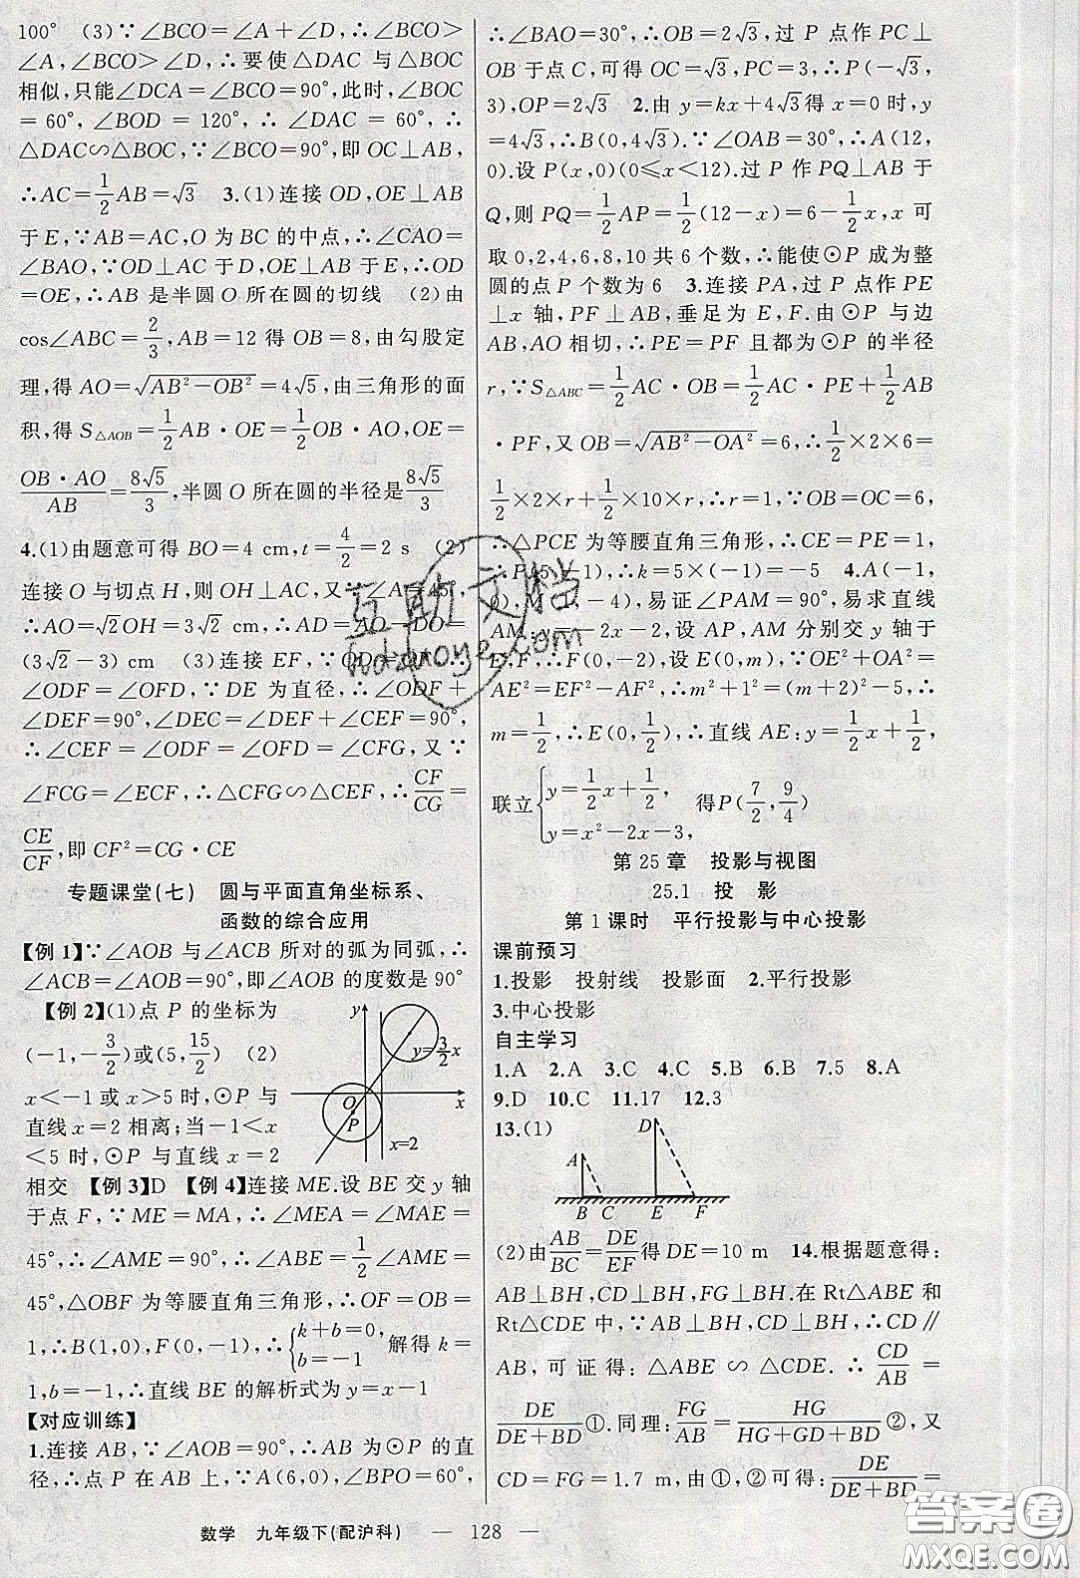 100° (3)∵∠BCO=∠A+∠D,∴∠BCO>
∠A,∠BCO>∠D,∴要使△DAC 与△BOC
相似,只能∠DCA=∠BCO=90°,此时,∠BOC
=60°,∠BOD = 120°,∴ ∠DAC = 60°,∴
△DAC∽△BOC,∵∠BCO=90°,即 OC⊥AB,
∴AC=1/2AB=√3 3.(1)连接 OD,OE⊥AB
于 E,∵AB=AC,O 为 BC 的中点,∴∠CAO=
∠BAO,∵OD⊥AC 于 D,OE⊥AB 于 E,∴OD
=OE,∴AB 是半圆 O 所在圆的切线 (2)由
cos∠ABC=2/3,AB=12 得 OB=8,由勾股定
理,得 AO=√(AB²-OB²)=4√5,由三角形的面
积,得 S△AOB=1/2AB·OE=1/2OB·AO,OE=
OB·AO/AB=8√5/3,半圆 O 所在圆的半径是8√5/3
4.(1)由题意可得 BO=4 cm,t=4/2=2 s (2)
连接 O 与切点 H,则 OH⊥AC,又∵∠A=45°,
∴AO=√2OH=3√2 cm,∴AD=AO-DO=
(3√2-3) cm (3)连接 EF,∵OD=OF,∴
∠ODF=∠OFD,∵DE 为直径,∴∠ODF+
∠DEF=90°,∠DEC=∠DEF+∠CEF=90°,
∴∠CEF=∠ODF=∠OFD=∠CFG,又∵
∠FCG=∠ECF,∴△CFG∽△CEF,∴CF/CG=
CE/CF,即 CF²=CG·CE
专题课堂(七) 圆与平面直角坐标系、
函数的综合应用
【例 1】∵∠AOB 与∠ACB 所对的弧为同弧,∴
∠ACB=∠AOB=90°,即∠AOB 的度数是 90°
【例 2】(1)点 P 的坐标为
(-1,-3/2)或(5,15/2) (2)
x<-1或x>5时,⊙P 与
直线x=2 相离;当-1<x
<5 时,⊙P 与直线 x=2
相交 【例 3】D 【例 4】连接 ME.设 BE 交 y 轴
于点 F,∵ME=MA,∴∠MEA=∠MAE=
45°,∴∠AME=90°,∴∠ABE=1/2∠AME=
45°,△OBF 为等腰直角三角形,∴OF=OB=
1,∴B(1,0),F(0,-1),∴{k+b=0, b=-1 解得 k=
1,b=-1,∴直线 BE 的解析式为 y=x-1
【对应训练】
1.连接 AB,∵∠AOB=90°,∴AB 为⊙P 的直
径,∴点 P 在 AB 上,∵A(6,0),∠BPO=60°,
y
y=3/2x
O
P
x
x=2
∴∠BAO=30°,∴OB=2√3,过 P 点作 PC⊥
OB 于点 C,可得 OC=√3,PC=3,∴P(-√3,
3),OP=2√3 2.由 y=kx+4√3得 x=0 时,y
=4√3,∴B(0,4√3).∵∠OAB=30°,∴A(12,
0).设 P(x,0)(0≤x<12).过 P 作 PQ⊥AB 于
Q,则 PQ=1/2AP=1/2(12-x)=6-1/2x,x 可
取 0,2,4,6,8,10 共 6 个数,∴能使⊙P 成为整
圆的点 P 个数为 6 3.连接 PA,过 P 点作 PE
⊥x 轴,PF⊥AB,垂足为 E,F.由⊙P 与边
AB,AO 相切,∴PE=PF 且都为⊙P 的半径
r,∵S△ABC=1/2AC·OB=1/2AC·PE+1/2AB
·PF,又 OB=√(AB²-OA²)=6,∴1/2×2×6=
1/2×2×r+1/2×10×r,∴r=1,∵OB=OC=6,
∴△PCE 为等腰直角三角形,∴CE=PE=1,
∴P(5,-1),∴k=5×(-1)=-5 4.A(-1,
0),M(1,-4),易证∠PAM=90°,易求直线
AM:y=-2x-2,设 AP,AM 分别交 y 轴于
E,F,∴F(0,-2),设 E(0,m),∵OE²+OA²=
AE²=EF²-AF²,∴m²+1²=(m+2)²-5,∴
m=1/2,∴E(0,1/2),∴直线 AE:y=1/2x+1/2,
联立{y=1/2x+1/2, y=x²-2x-3, 得P(7/2,9/4)
第 25 章 投影与视图
25.1 投 影
第 1 课时 平行投影与中心投影
课前预习
1.投影 投射线 投影面 2.平行投影
3.中心投影
自主学习
1.A 2.A 3.C 4.C 5.B 6.B 7.5 8.A
9.D 10.C 11.17 12.3
13.(1)
D
A
B C E F
(2)由AB/BC=DE/EF得 DE=10 m 14.根据题意得:
AB⊥BH,CD⊥BH,FG⊥BH.在 Rt△ABE 和
Rt△CDE 中,∵AB⊥BH,CD⊥BH,∴CD∥
AB,可证得:△ABE ∽ △CDE. ∴ CD/AB =
DE/(DE+BD)①.同理:FG/AB=HG/(HG+GD+BD)②,又
CD=FG=1.7 m,由①,②可得:DE/(DE+BD)=
数学 九年级下(配沪科) — 128 —
互助文档
hdzuoye.com
答案圈
MXQE.COM